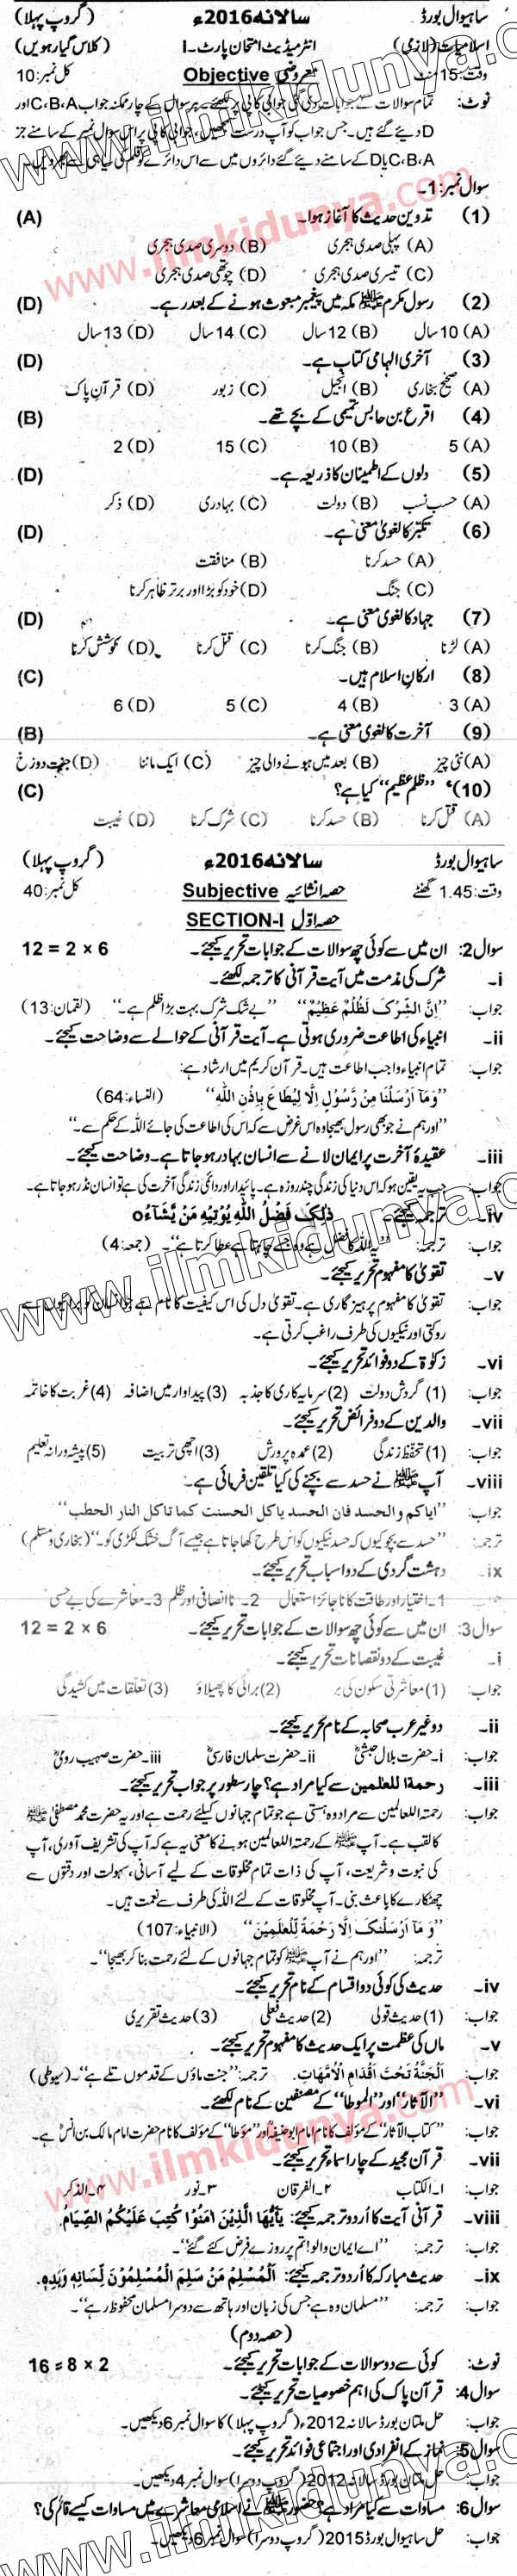 ساہیوال بورڈ سالانہ 2016ء (گروپ پہلا)
اسلامیات (لازمی) انٹرمیڈیٹ امتحان پارٹ-I (کلاس گیارہویں)
وقت: 15 منٹ معروضی Objective کل نمبر: 10
نوٹ: تمام سوالات کے جوابات دی گئی جوابی کاپی پر لکھئے۔ ہر سوال کے چار ممکنہ جواب C،B،A اور
D دیئے گئے ہیں۔ جس جواب کو آپ درست سمجھیں، جوابی کاپی پر اس سوال نمبر کے سامنے جز
C،B،A یا D کے سامنے دیئے گئے دائروں میں سے اس دائرے کو قلم کی سیاہی سے بھر دیں۔
سوال نمبر: 1۔
(1) تدوین حدیث کا آغاز ہوا۔ (A)
(A) پہلی صدی ہجری (B) دوسری صدی ہجری
(C) تیسری صدی ہجری (D) چوتھی صدی ہجری
(2) رسول مکرم ﷺ مکہ میں پیغمبر مبعوث ہونے کے بعد رہے۔ (D)
(A) 10 سال (B) 12 سال (C) 14 سال (D) 13 سال
(3) آخری الہامی کتاب ہے۔ (D)
(A) صحیح بخاری (B) انجیل (C) زبور (D) قرآن پاک
(4) اقرع بن حابس تمیمی کے بچے تھے۔ (B)
(A) 5 (B) 10 (C) 15 (D) 2
(5) دلوں کے اطمینان کا ذریعہ ہے۔ (D)
(A) حسب نسب (B) دولت (C) بہادری (D) ذکر
(6) تکبّر کا لغوی معنی ہے۔ (D)
(A) حسد کرنا (B) منافقت
(C) جنگ (D) خود کو بڑا اور برتر ظاہر کرنا
(7) جہاد کا لغوی معنی ہے۔ (D)
(A) لڑنا (B) جنگ کرنا (C) قتل کرنا (D) کوشش کرنا
(8) ارکانِ اسلام ہیں۔ (C)
(A) 3 (B) 4 (C) 5 (D) 6
(9) آخرت کا لغوی معنی ہے۔ (B)
(A) نئی چیز (B) بعد میں ہونے والی چیز (C) ایک ماننا (D) جنت دوزخ
(10) ”ظلم عظیم“ کیا ہے؟ (C)
(A) قتل کرنا (B) حسد کرنا (C) شرک کرنا (D) غیبت
ساہیوال بورڈ سالانہ 2016ء (گروپ پہلا)
وقت: 1.45 گھنٹے حصہ انشائیہ Subjective کل نمبر: 40
حصہ اوّل SECTION-I
سوال 2: ان میں سے کوئی چھ سوالات کے جوابات تحریر کیجئے۔ 12 = 2 × 6
i۔ شرک کی مذمت میں آیت قرآنی کا ترجمہ لکھئے۔
جواب: ”اِنَّ الشِّرْکَ لَظُلْمٌ عَظِیْمٌ“ ”بے شک شرک بہت بڑا ظلم ہے۔“ (لقمان: 13)
ii۔ انبیاء کی اطاعت ضروری ہوتی ہے۔ آیت قرآنی کے حوالے سے وضاحت کیجئے۔
جواب: تمام انبیاء واجب اطاعت ہیں۔ قرآن کریم میں ارشاد ہے:
”وَمَآ اَرْسَلْنَا مِنْ رَّسُوْلٍ اِلَّا لِیُطَاعَ بِاِذْنِ اللّٰہِ“ (النساء: 64)
”اور ہم نے جو بھی رسول بھیجا وہ اس غرض سے کہ اس کی اطاعت کی جائے اللہ کے حکم سے۔“
iii۔ عقیدۂ آخرت پر ایمان لانے سے انسان بہادر ہو جاتا ہے۔ وضاحت کیجئے۔
جواب: جب یہ یقین ہو کہ اس دنیا کی زندگی چند روزہ ہے۔ پائیدار اور دائمی زندگی آخرت کی ہے تو انسان نڈر ہو جاتا ہے۔
iv۔ ترجمہ کیجئے۔ ذٰلِکَ فَضْلُ اللّٰہِ یُؤْتِیْہِ مَنْ یَّشَآءُ o
جواب: ترجمہ: ”یہ اللہ کا فضل ہے وہ جسے چاہتا ہے عطا کرتا ہے“۔ (جمعہ: 4)
v۔ تقویٰ کا مفہوم تحریر کیجئے۔
جواب: تقویٰ کا مفہوم پرہیز گاری ہے۔ تقویٰ دل کی اس کیفیت کا نام ہے جو انسان کو برائیوں سے
روکتی اور نیکیوں کی طرف راغب کرتی ہے۔
vi۔ زکوٰۃ کے دو فوائد تحریر کیجئے۔
جواب: (1) گردش دولت (2) سرمایہ کاری کا جذبہ (3) پیداوار میں اضافہ (4) غربت کا خاتمہ
vii۔ والدین کے دو فرائض تحریر کیجئے۔
جواب: (1) تحفظ زندگی (2) عمدہ پرورش (3) اچھی تربیت (5) پیشہ ورانہ تعلیم
viii۔ آپ ﷺ نے حسد سے بچنے کی کیا تلقین فرمائی ہے۔
جواب: ”ایاکم والحسد فان الحسد یاکل الحسنت کما تاکل النار الحطب“
ترجمہ: ”حسد سے بچو کیوں کہ حسد نیکیوں کو اس طرح کھا جاتا ہے جیسے آگ خشک لکڑی کو۔“ (بخاری و مسلم)
ix۔ دہشت گردی کے دو اسباب تحریر کیجئے۔
جواب: 1۔ اختیار اور طاقت کا ناجائز استعمال 2۔ نا انصافی اور ظلم 3۔ معاشرے کی بے حسی
سوال 3: ان میں سے کوئی چھ سوالات کے جوابات تحریر کیجئے۔ 12 = 2 × 6
i۔ غیبت کے دو نقصانات تحریر کیجئے۔
جواب: (1) معاشرتی سکون کی بر (2) برائی کا پھیلاؤ (3) تعلقات میں کشیدگی
ii۔ دو غیر عرب صحابہ کے نام تحریر کیجئے۔
جواب: i۔ حضرت بلال حبشیؓ ii۔ حضرت سلمان فارسیؓ iii۔ حضرت صہیب رومیؓ
iii۔ رحمۃ للعٰلمین سے کیا مراد ہے؟ چار سطور پر جواب تحریر کیجئے۔
جواب: رحمۃ اللعالمین سے مراد وہ ہستی ہے جو تمام جہانوں کیلئے رحمت ہے اور یہ حضرت محمد مصطفیٰ ﷺ
کا لقب ہے۔ آپ ﷺ کے رحمۃ اللعالمین ہونے کا معنی یہ ہے کہ آپ کی تشریف آوری، آپ
کی نبوت و شریعت، آپ کی ذات تمام مخلوقات کے لیے آسانی، سہولت اور دقتوں سے
چھٹکارے کا باعث بنی۔ آپ مخلوقات کے لئے اللہ کی طرف سے نعمت ہیں۔
”وَ مَآ اَرْسَلْنٰکَ اِلَّا رَحْمَۃً لِّلْعٰلَمِیْنَ“ (الانبیاء: 107)
ترجمہ: ”اور ہم نے آپ ﷺ کو تمام جہانوں کے لئے رحمت بنا کر بھیجا“۔
iv۔ حدیث کی کوئی دو اقسام کے نام تحریر کیجئے۔
جواب: (1) حدیث قولی (2) حدیث فعلی (3) حدیث تقریری
v۔ ماں کی عظمت پر ایک حدیث کا مفہوم تحریر کیجئے۔
جواب: اَلْجَنَّۃُ تَحْتَ اَقْدَامِ الْاُمَّھَاتِ۔ ترجمہ: ”جنت ماؤں کے قدموں تلے ہے“۔ (سیوطی)
vi۔ ”الآثار“ اور ”الموطا“ کے مصنفین کے نام لکھئے۔
جواب: ”کتاب الآثار“ کے مؤلف کا نام امام ابو حنیفہؒ اور ”مؤطا“ کے مؤلف کا نام حضرت امام مالک بن انسؒ ہے۔
vii۔ قرآن مجید کے چار اسماء تحریر کیجئے۔
جواب: ۱۔ الکتاب ۲۔ الفرقان ۳۔ نور ۴۔ الذکر
viii۔ قرآنی آیت کا اُردو ترجمہ کیجئے: یٰٓاَیُّھَا الَّذِیْنَ اٰمَنُوْا کُتِبَ عَلَیْکُمُ الصِّیَامُ
جواب: ترجمہ: ”اے ایمان والو! تم پر روزے فرض کئے گئے“۔
ix۔ حدیث مبارکہ کا اُردو ترجمہ کیجئے: اَلْمُسْلِمُ مَنْ سَلِمَ الْمُسْلِمُوْنَ لِّسَانِہٖ وَیَدِہٖ۔
جواب: ترجمہ: ”مسلمان وہ ہے جس کی زبان اور ہاتھ سے دوسرا مسلمان محفوظ رہے“۔
(حصہ دوم)
نوٹ: کوئی سے دو سوالات کے جوابات تحریر کیجئے۔ 16 = 8 × 2
سوال 4: قرآن پاک کی اہم خصوصیات تحریر کیجئے۔
جواب: حل ملتان بورڈ سالانہ 2012ء (گروپ پہلا) کا سوال نمبر 6 دیکھیں۔
سوال 5: نماز کے انفرادی اور اجتماعی فوائد تحریر کیجئے۔
جواب: حل ملتان بورڈ سالانہ 2012 (گروپ دوسرا) سوال نمبر 4 دیکھیں۔
سوال 6: مساوات سے کیا مراد ہے؟ حضور ﷺ نے اسلامی معاشرے میں مساوات کیسے قائم کی؟
جواب: حل ساہیوال بورڈ 2015 (گروپ دوسرا) سوال نمبر 6 دیکھیں۔
www.ilmkidunya.com